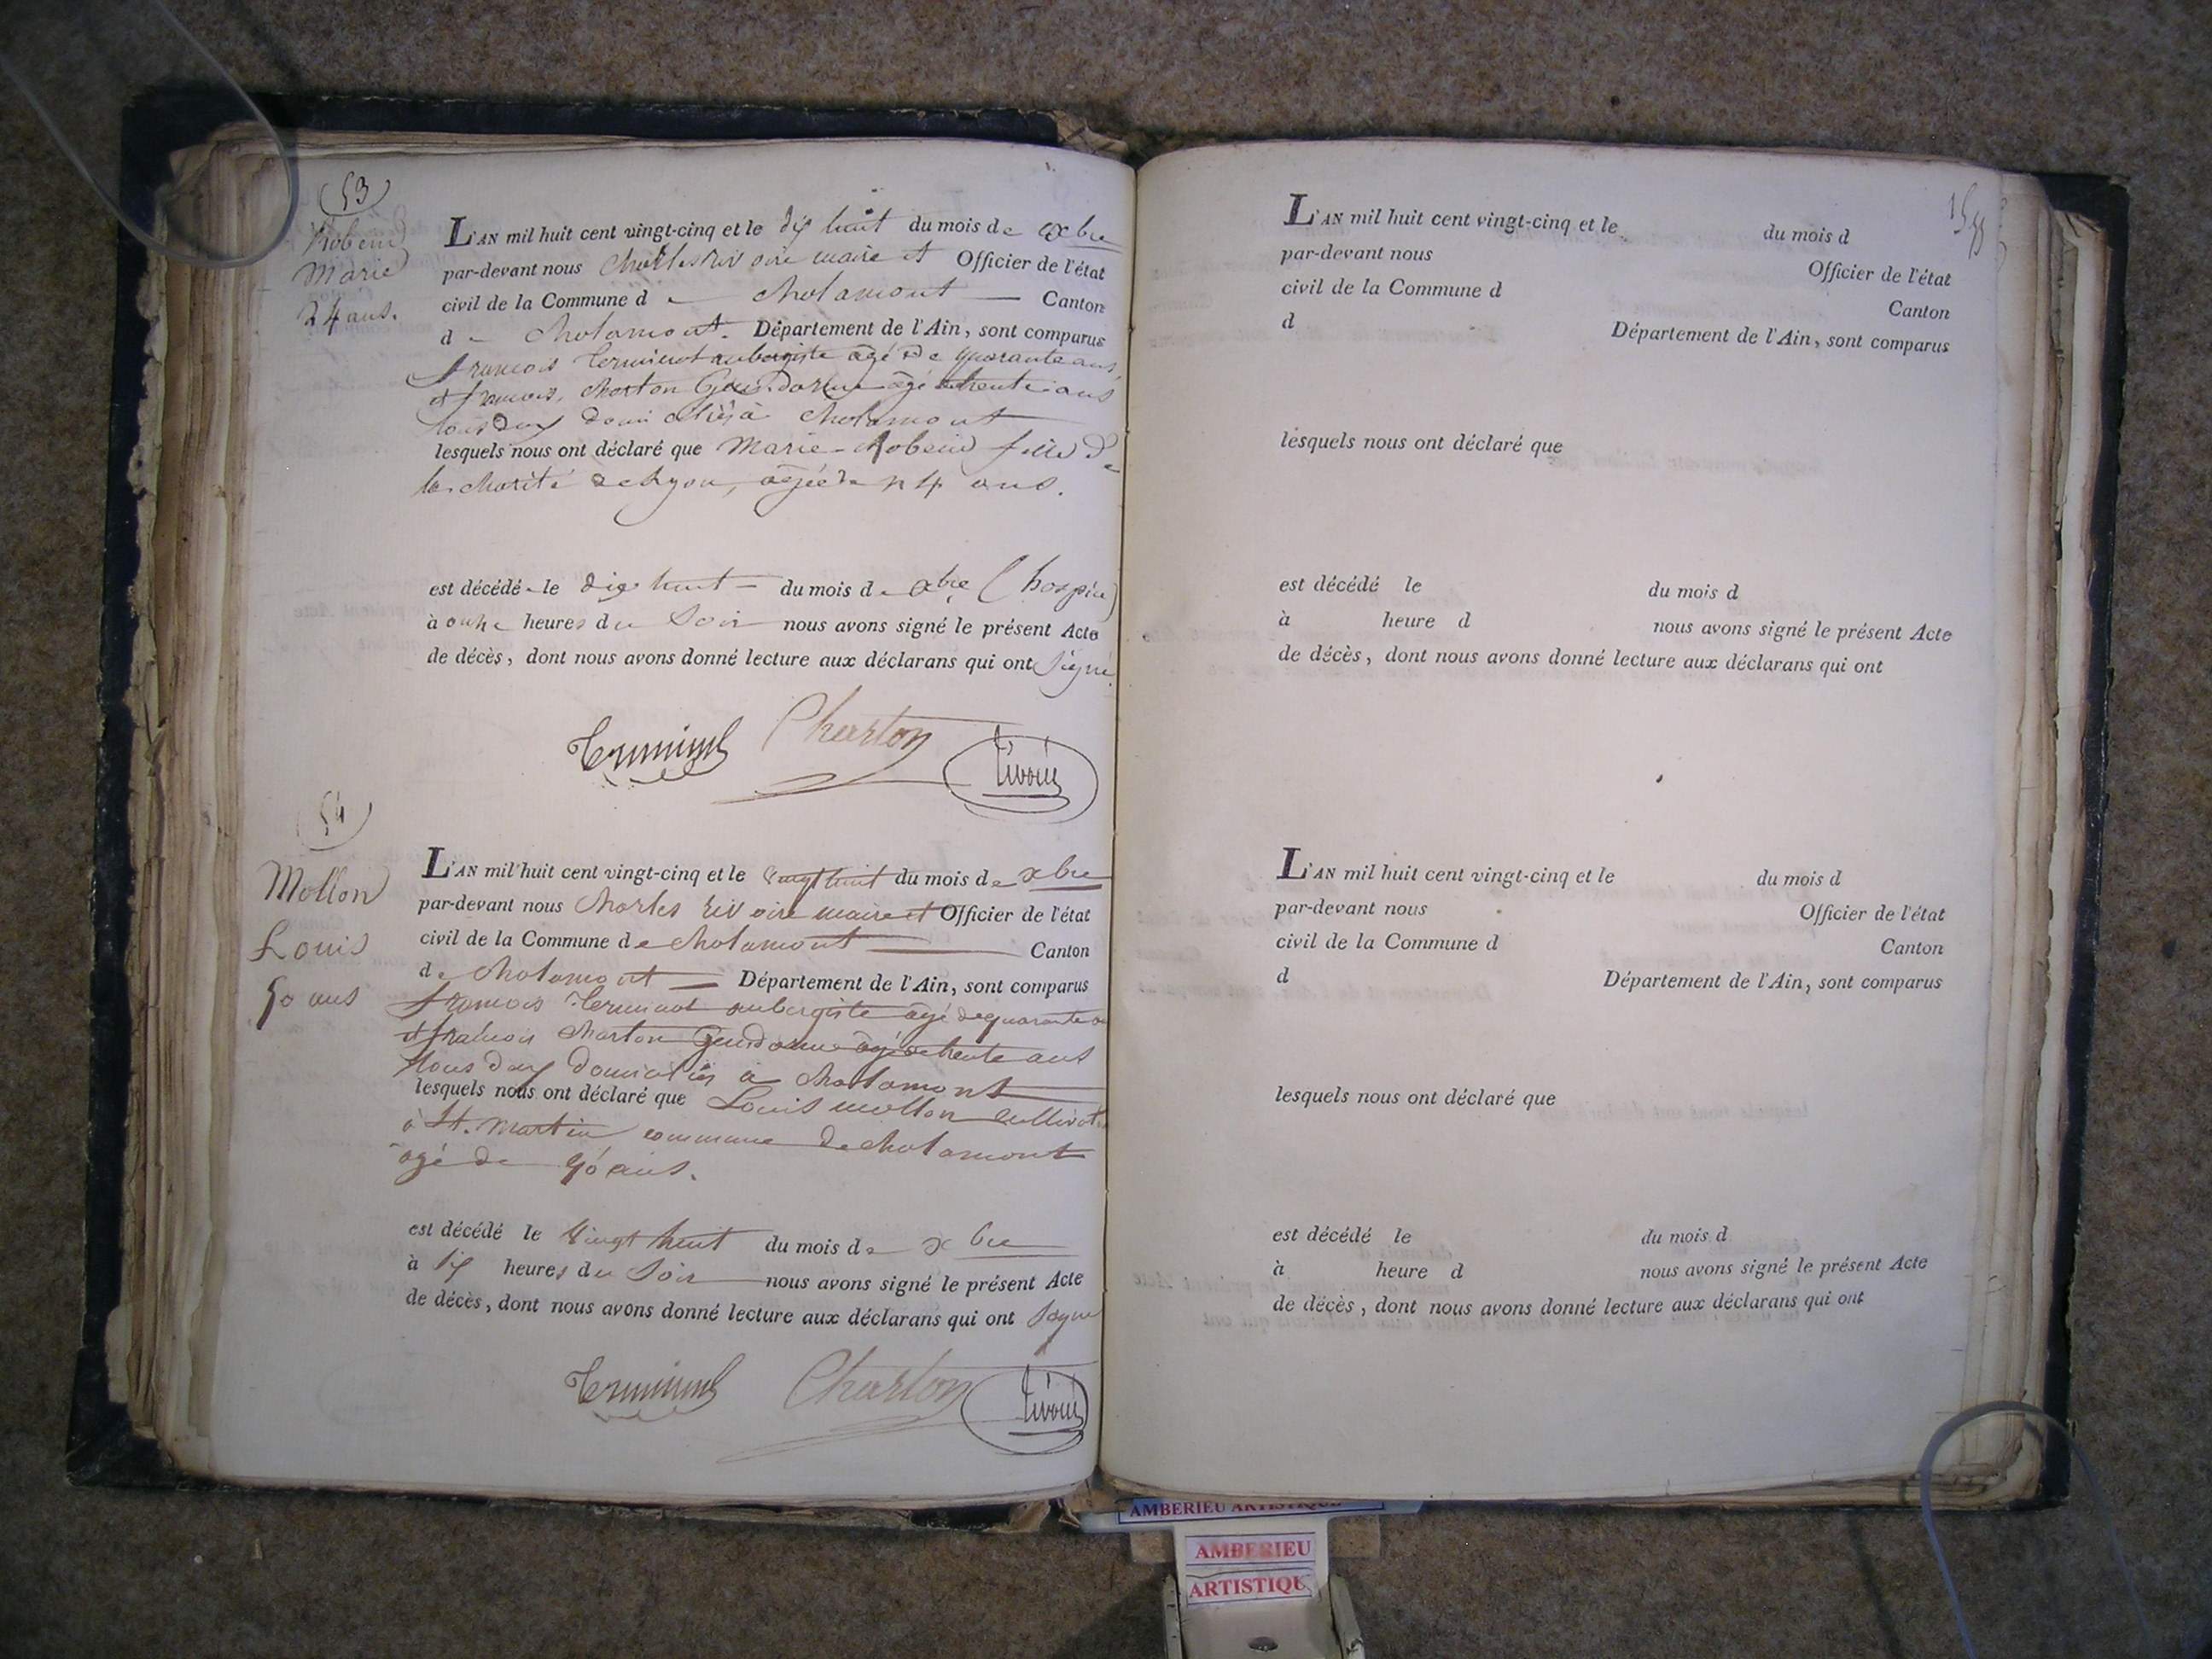 (53)
Robeiud
Marie
24 ans.
L'AN mil huit cent vingt-cinq et le dix huit du mois de xbre
par-devant nous Charles rivoire maire et Officier de l'état
civil de la Commune de chalamont Canton
de chalamont. Département de l'Ain, sont comparus
françois Terminot aubergiste agé de quarante ans,
et françois, charton Gendarme agé de trente ans
tous deux domiciliés à chalamont
lesquels nous ont déclaré que Marie fille de
la charité de Lyon, agée de 24 ans.
est décédée le dix huit du mois de xbre (hospice)
à onze heures du Soir nous avons signé le présent Acte
de décès, dont nous avons donné lecture aux déclarans qui ont signé.
Terminot Charton Rivoire
(54)
Mollon
Louis
50 ans
L'AN mil huit cent vingt-cinq et le vingt huit du mois de xbre
par-devant nous Charles rivoire maire et Officier de l'état
civil de la Commune de chalamont Canton
de chalamont Département de l'Ain, sont comparus
françois Terminot aubergiste agé de quarante
et françois charton Gendarme agé de trente ans
tous deux domiciliés à chalamont
lesquels nous ont déclaré que Louis mollon cultivat
à St. Martin commune de chalamont
agé de 50 ans.
est décédé le vingt huit du mois de xbre
à six heures du Soir nous avons signé le présent Acte
de décès, dont nous avons donné lecture aux déclarans qui ont signé
Terminot Charton Rivoire
L'AN mil huit cent vingt-cinq et le du mois d
par-devant nous Officier de l'état
civil de la Commune d Canton
d Département de l'Ain, sont comparus
lesquels nous ont déclaré que
est décédé le du mois d
à heure d nous avons signé le présent Acte
de décès, dont nous avons donné lecture aux déclarans qui ont
L'AN mil huit cent vingt-cinq et le du mois d
par-devant nous Officier de l'état
civil de la Commune d Canton
d Département de l'Ain, sont comparus
lesquels nous ont déclaré que
est décédé le du mois d
à heure d nous avons signé le présent Acte
de décès, dont nous avons donné lecture aux déclarans qui ont
AMBERIEU ARTISTIQUE
AMBERIEU
ARTISTIQU